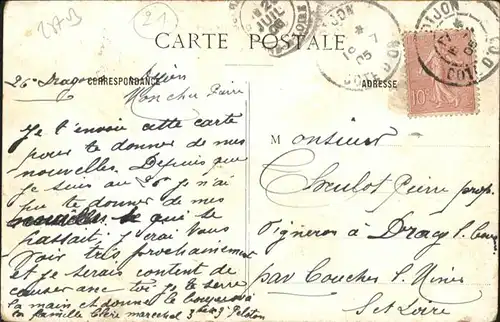 2703
21
CARTE POSTALE
CORRESPONDANCE
ADRESSE
DIJON
COTE D'OR
10c
26e Dragons Dijon
Mon cher Pierre
Je t'envoie cette carte
pour te donner de mes
nouvelles. Depuis que
je suis au je n'ai
pu te donner de mes
nouvelles de ce qui se
passait. J'irai vous
voir très prochainement
et je serais content de
causer avec toi je te serre
la main et donne le bonjour à
ta famille marechal 3e Peloton
Monsieur
Pierre prop.
Vigneron à Dracy s. Couches
par Couches l. Mines
S et Loire